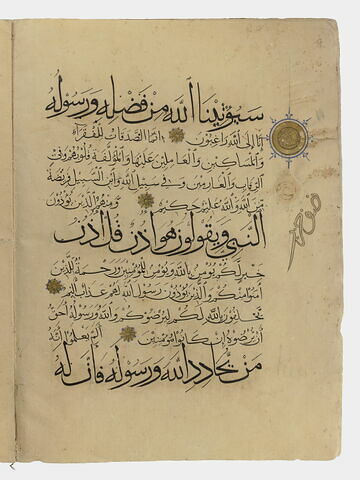 سيؤتينا الله من فضله ورسوله
انا الى الله راغبون انما الصدقات للفقراء
والمساكين والعاملين عليها والمؤلفة قلوبهم وفي
الرقاب والغارمين وفي سبيل الله وابن السبيل فريضة
من الله والله عليم حكيم ومنهم الذين يؤذون
النبي ويقولون هو اذن قل اذن
خير لكم يؤمن بالله ويؤمن للمؤمنين ورحمة للذين
امنوا منكم والذين يؤذون رسول الله لهم عذاب اليم
يحلفون بالله لكم ليرضوكم والله ورسوله احق
ان يرضوه ان كانوا مؤمنين الم يعلموا انه
من يحادد الله ورسوله فان له